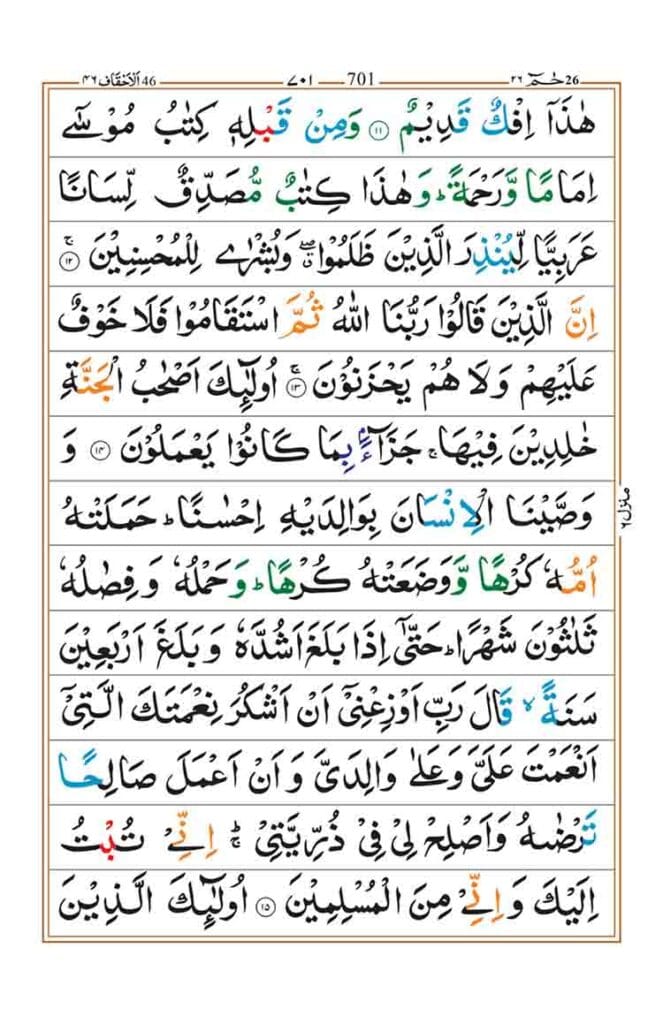 26 حٰمٓ ٢٦ 701 ٧٠١ 46 الاحقاف ٤٦
هٰذَاۤ اِفْكٌ قَدِیْمٌ ﴿۱۱﴾ وَمِنْ قَبْلِهٖ كِتٰبُ مُوْسٰۤی
اِمَامًا وَّرَحْمَةًؕ وَهٰذَا كِتٰبٌ مُّصَدِّقٌ لِّسَانًا
عَرَبِیًّا لِّیُنْذِرَ الَّذِیْنَ ظَلَمُوْا ۖۗ وَبُشْرٰی لِلْمُحْسِنِیْنَ ۚ﴿۱۲﴾
اِنَّ الَّذِیْنَ قَالُوْا رَبُّنَا اللّٰهُ ثُمَّ اسْتَقَامُوْا فَلَا خَوْفٌ
عَلَیْهِمْ وَلَا هُمْ یَحْزَنُوْنَ ۚ﴿۱۳﴾ اُولٰٓىِٕكَ اَصْحٰبُ الْجَنَّةِ
خٰلِدِیْنَ فِیْهَا ۚ جَزَآءًۢ بِمَا كَانُوْا یَعْمَلُوْنَ ﴿۱۴﴾ وَ
وَصَّیْنَا الْاِنْسَانَ بِوَالِدَیْهِ اِحْسٰنًاؕ حَمَلَتْهُ
اُمُّهٗ كُرْهًا وَّ وَضَعَتْهُ كُرْهًاؕ وَحَمْلُهٗ وَفِصٰلُهٗ
ثَلٰثُوْنَ شَهْرًاؕ حَتّٰۤی اِذَا بَلَغَ اَشُدَّهٗ وَبَلَغَ اَرْبَعِیْنَ
سَنَةً ۙ قَالَ رَبِّ اَوْزِعْنِیْۤ اَنْ اَشْكُرَ نِعْمَتَكَ الَّتِیْۤ
اَنْعَمْتَ عَلَیَّ وَعَلٰی وَالِدَیَّ وَاَنْ اَعْمَلَ صَالِحًا
تَرْضٰىهُ وَاَصْلِحْ لِیْ فِیْ ذُرِّیَّتِیْ ؕۚ اِنِّیْ تُبْتُ
اِلَیْكَ وَاِنِّیْ مِنَ الْمُسْلِمِیْنَ ﴿۱۵﴾ اُولٰٓىِٕكَ الَّذِیْنَ
منزل ٦